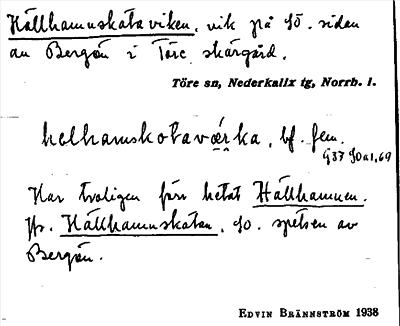 Hällhamnskataviken, vik på SÖ. sidan
av Bergön i Töre skärgård.
Töre sn, Nederkalix tg, Norrb. l.
hęlhamskotavǿrka, bf. fem.
Har troligen förr hetat Hällhamnen.
Jfr. Hällhamnskatan, SO. spetsen av
Bergön.
EDVIN BRÄNNSTRÖM 1938